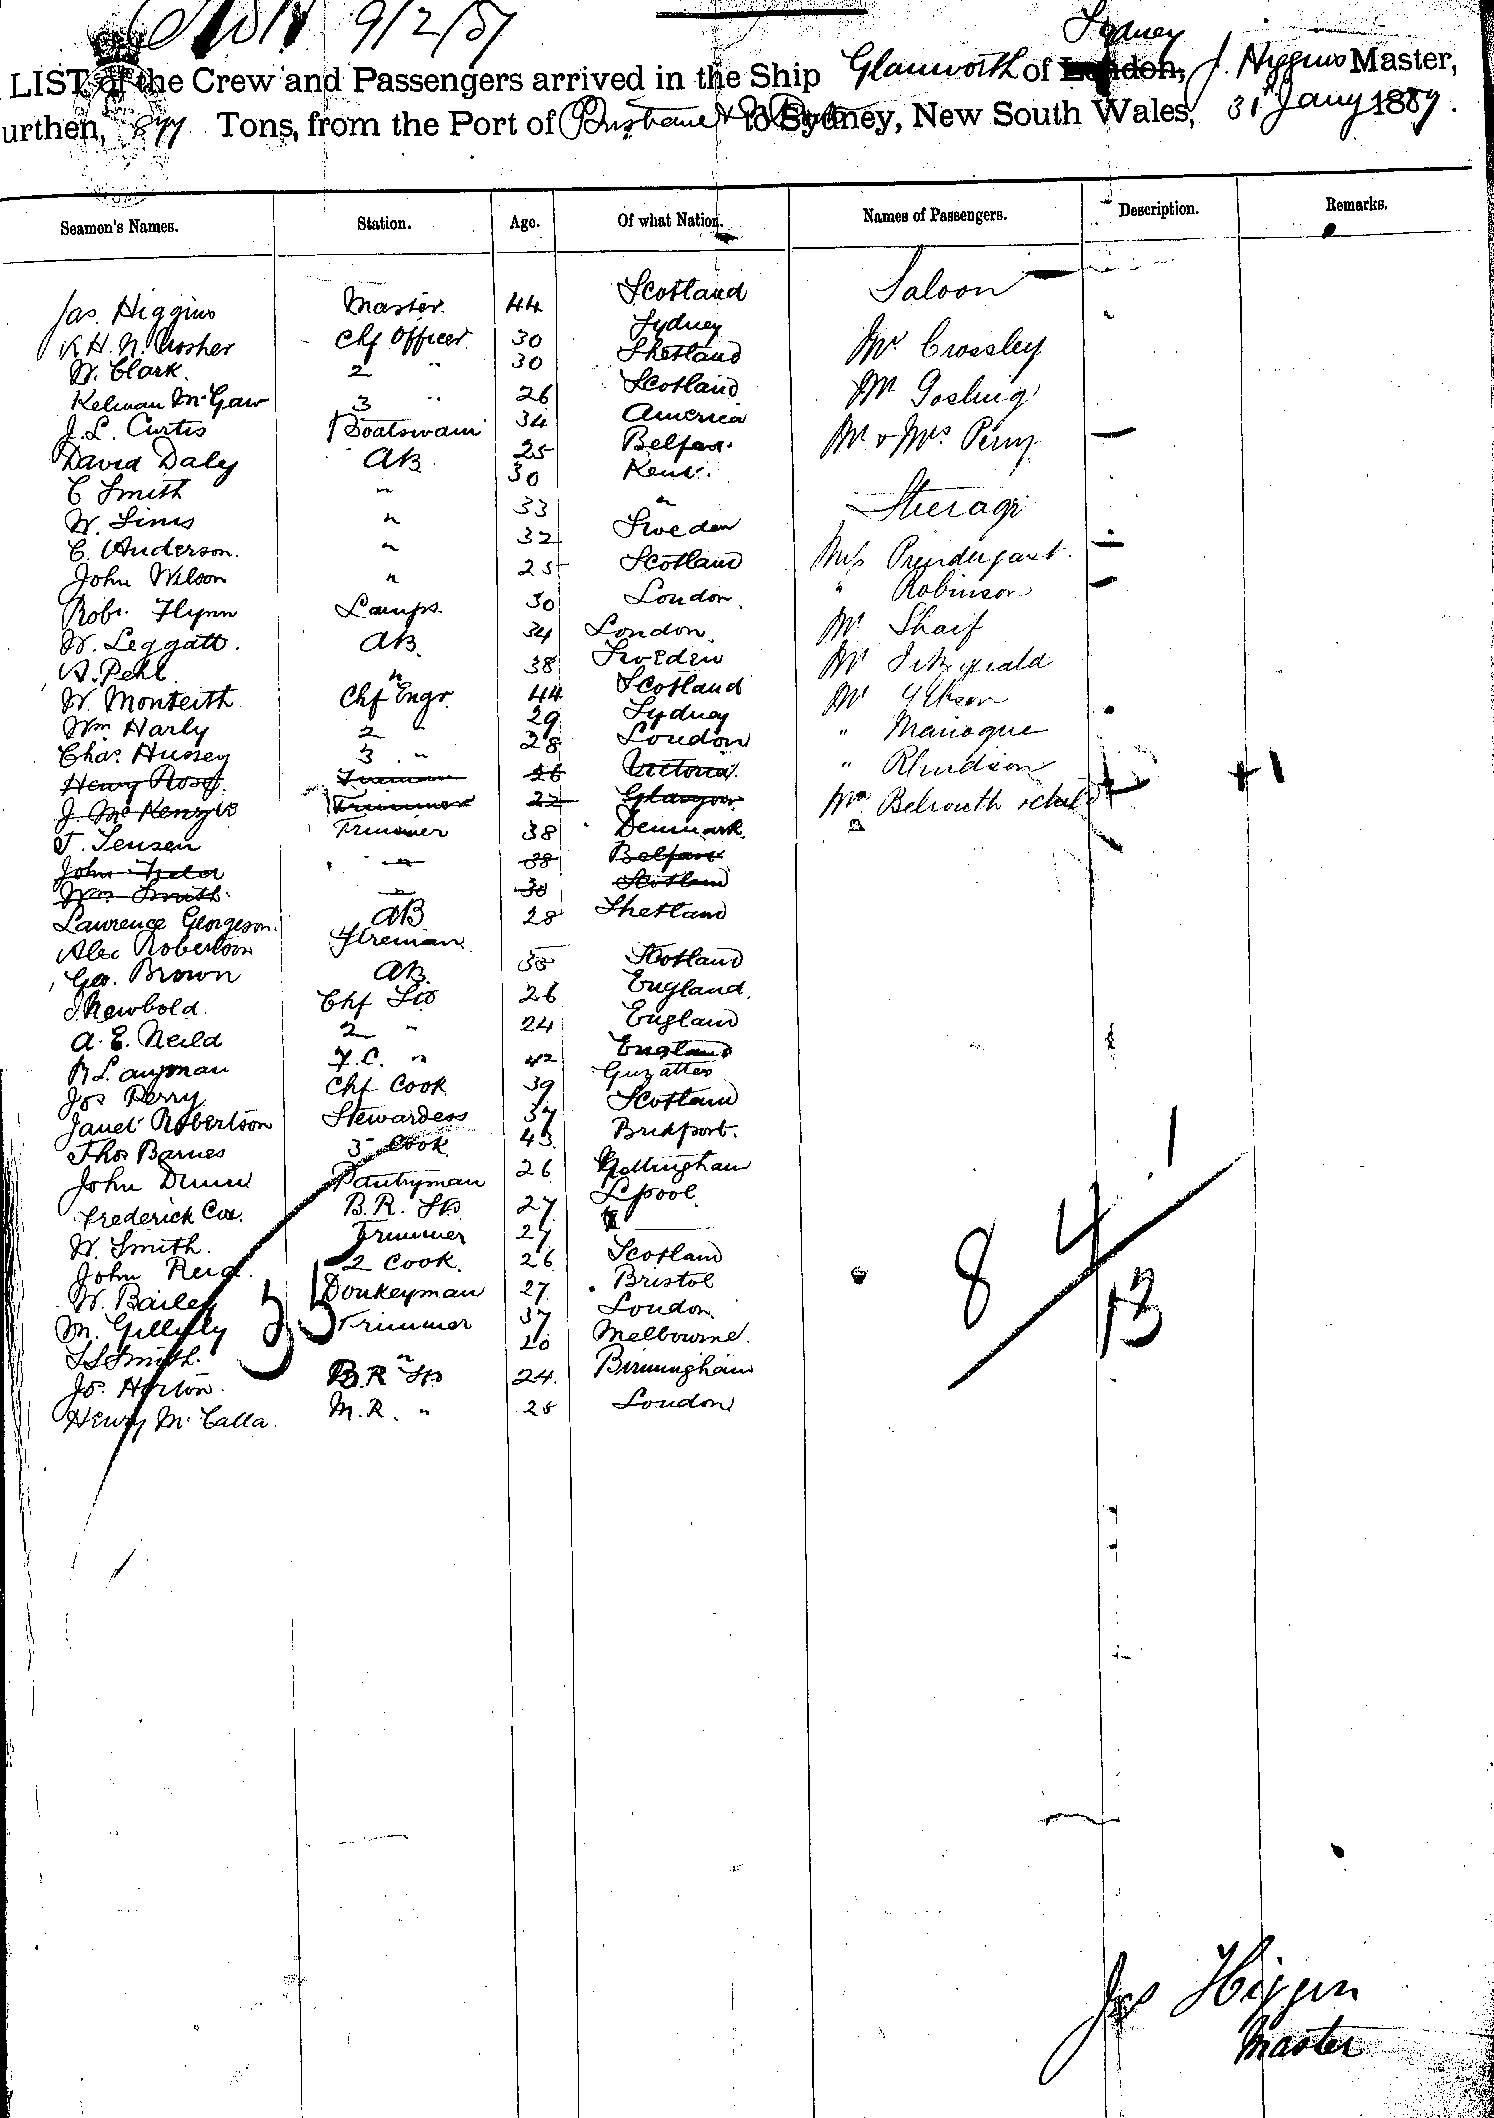 9/2/87
Sydney
LIST of the Crew and Passengers arrived in the Ship Glanworth of London, J. Higgins Master,
urthen, 877 Tons, from the Port of Brisbane & to Sydney, New South Wales, 31 Jany 1887.
Seamen's Names. Station. Age. Of what Nation. Names of Passengers. Description. Remarks.
Saloon
Jas. Higgins Master 44 Scotland
K H. N. Crosher Chf Officer 30 Sydney Mr Crossley
W. Clark. 2 " 30 Shetland
Kelman McGaw 3 " 26 Scotland Mr Gosling
J. L. Curtis Boatswain 34 America
David Daly AB 25 Belfast Mr & Mrs Perry
C Smith " 30 Kent.
W. Sims " 33 " Steerage
C. Anderson. " 32 Sweden
John Wilson " 25 Scotland Miss Prendergast
Robt. Flynn Lamps. 30 London. " Robinson
W. Leggatt. AB. 34 London. Mr Sharf
A. Pehl " 38 Sweden Mr Fitzgerald
W. Monteith Chf Engr. 44 Scotland Mr
Wm Harly 2 " 29 Sydney " Manogue
Chas. Hussey 3 " 28 London "
Henry Ross. Fireman 26 Victoria.
J. McKenzie Trimmer 22 Glasgow Mrs
J. Jensen Trimmer 38 Denmark
John " 38 Belfast
Wm Smith. " 30 Scotland
Lawrence Georgeson. AB 28 Shetland
Alec Robertson Fireman
Geo. Brown AB. 35 Scotland
J Newbold. Chf Std 26 England.
A. E. Neild 2 " 24 England
R Layman F.C. " 42 England
Jos Perry Chf Cook 39
Janet Robertson Stewardess 37 Scotland
Thos Barnes 3 Cook 43 Bridport.
John Dunn Pantryman 26 Nottingham
Frederick Cox. B.R. Std 27 L'pool.
W. Smith. Trimmer 27
John Reid. 2 Cook. 26 Scotland
W. Bailey Donkeyman 27. Bristol
M. Gillilly Trimmer 37 London
S Smith. " 20 Melbourne.
Jo. Horton. B.R Std 24. Birmingham
Henry McCalla. M.R. " 28 London
35
8 4 1
13
Jas Higgins
Master